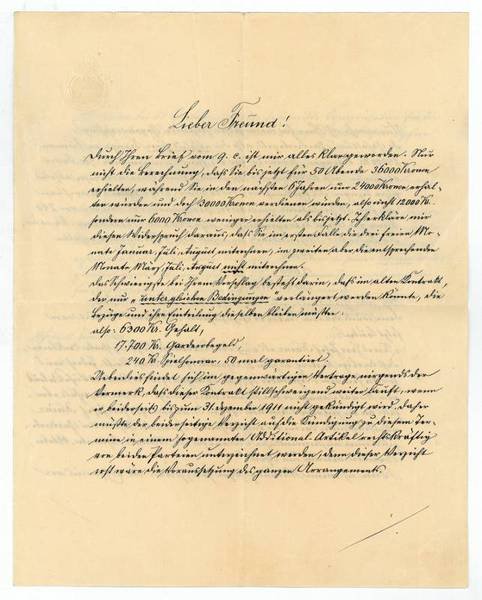 Lieber Freund!
Durch Ihren Brief vom 9. c. ist mir alles klargeworden. Nur
nicht die Berechnung, dass Sie bis jetzt für 50 Abende 36000 Krone
erhielten, während Sie in den nächsten 6 Jahren nur 24000 Krone erhal
ten würden und doch 30000 Krone verdienen würden, also nicht 12000 K.
sondern nur 6000 Krone weniger erhielten als bis jetzt. Ich erkläre mir
diesen Widerspruch daraus, dass Sie im ersten Falle die drei freien Mo-
nate Januar, Juli, August mitrechnen, im zweiten aber die entsprechenden
Monate März, Juli, August nicht mitrechnen.
Das Schwierigste bei Ihrem Vorschlag besteht darin, dass im alten Contrakt,
der nur "unter gleichen Bedingungen" verlängert werden könnte, die
Bezüge und ihre Einteilung dieselben bleiben müssten.
also: 6300 Kr. Gehalt,
17.700 Kr. Garderobegeld,
240 Kr. Spielhonorar, 50 mal garantiert.
Ueberdies findet sich im gegenwärtigen Vertrage nirgends der
Vermerk, dass dieser Contrakt stillschweigend weiter läuft, wenn
er beiderseits bis zum 31. Dezember 1911 nicht gekündigt wird. Daher
müsste der beiderseitige Verzicht auf die Kündigung zu diesem Ter-
min in einem sogenannten Additional-Artikel rechtskräftig
von beiden Parteien unterzeichnet werden, denn dieser Verzicht
erst wäre die Voraussetzung des ganzen Arrangements.